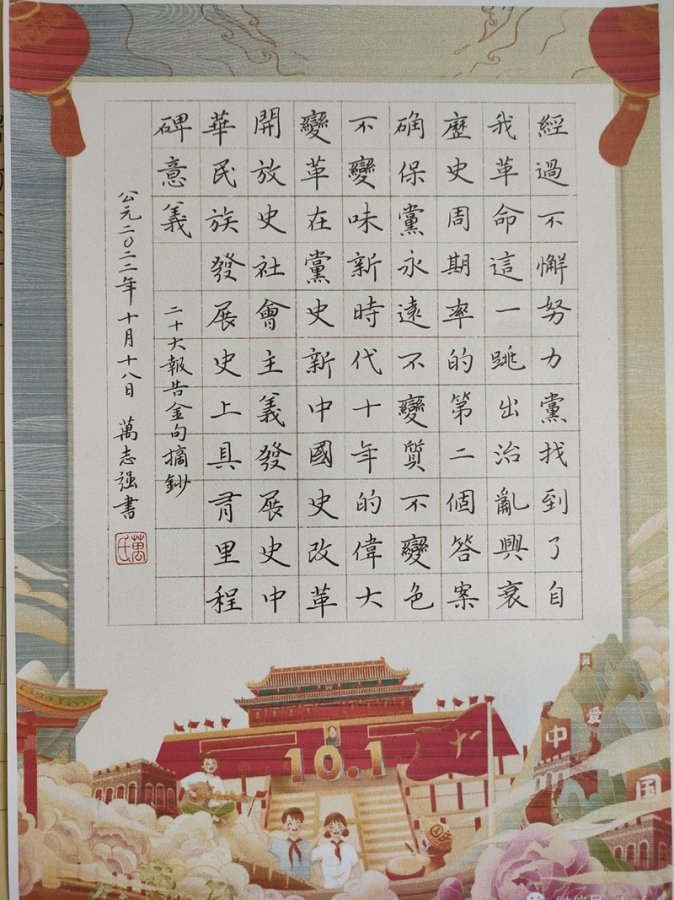 經過不懈努力黨找到了自
我革命這一跳出治亂興衰
歷史周期率的第二個答案
确保黨永遠不變質不變色
不變味新時代十年的偉大
變革在黨史新中國史改革
開放史社會主義發展史中
華民族發展史上具有里程
碑意義
二十大報告金句摘鈔
公元二〇二二年十月十八日 萬志强書
萬氏
10.1
我爱中国